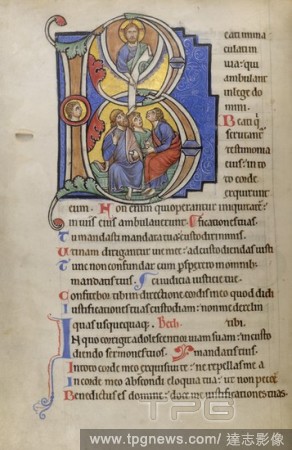 cati inma
culati in
uia: qui
ambulant
in lege do
mini.
Beati q
scrutant
testimonia
eius: in to
to corde
exquirunt
eum. Non enim qui operantur iniquitatē:
in uiis eius ambulauerunt.
Tu mandasti mandata tua: custodiri nimis.
Utinam dirigantur uie mee: ad custodiendas iusti
Tunc non confundar: cum pspexero in omnib;
mandatis tuis.
Confitebor tibi in directione cordis: in eo quod didi
Iustificationes tuas custodiam: non me derelin
quas usquequaq;.
In quo corrigit adolescentior uiam suam: in custo
diendo sermones tuos.
In toto corde meo exquisiui te: ne repellas me a
In corde meo abscondi eloquia tua: ut non pecce
Benedictus es domine: doce me iustificationes tuas.
TPG
www.tpgnews.com / 達志影像